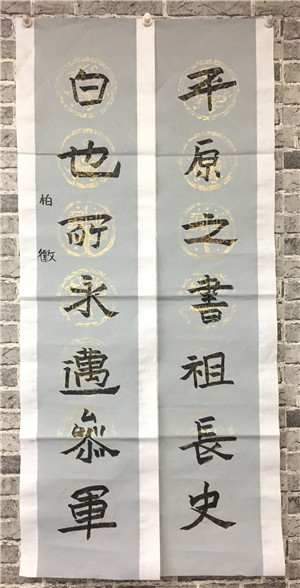 平原之書祖長史
白也所永邁叅軍
柏徽